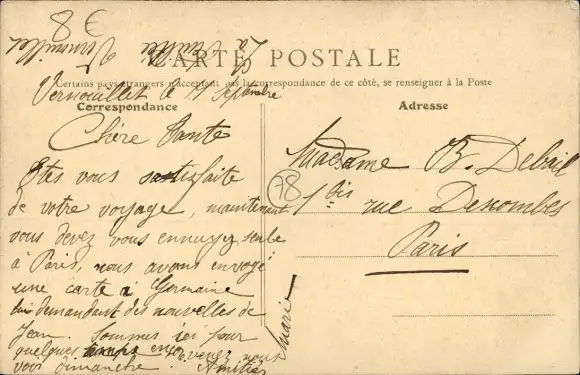 8 €
La Vieille Vernouillet
CARTE POSTALE
Certains pays étrangers n'acceptant pas la correspondance de ce côté, se renseigner à la Poste
Correspondance
Adresse
Vernouillet le 11 Septembre
Chère Tante
Etes vous satisfaite
de votre voyage, maintenant
vous devez vous ennuyer seule
à Paris, nous avons envoyé
une carte à Germaine
lui demandant des nouvelles de
Jean. Sommes ici pour
quelques temps encore venez nous
voir dimanche. Amitiés
Marie
78
Madame B. Debail
1 bis rue Desnombes
Paris